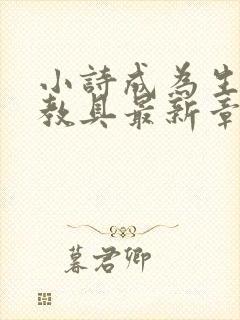 小詩成為生
教具最新章
暮君卿